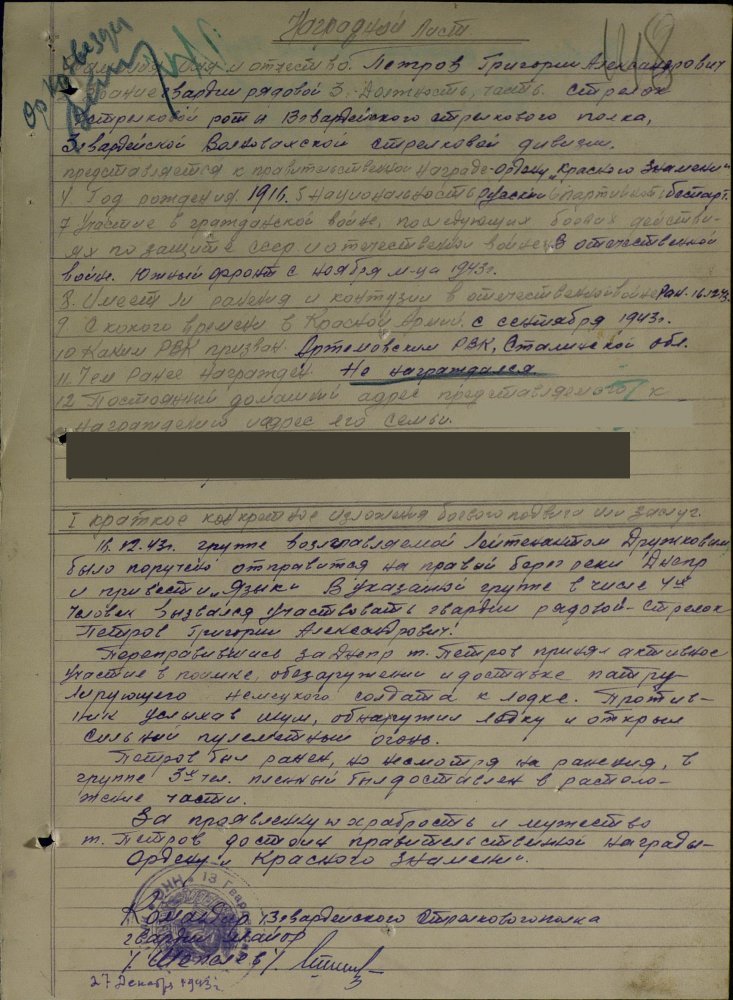 Наградной Лист
418
Фамилия имя и отчество. Петров Григорий Александрович
Звание гвардии рядовой 3. Должность, часть. Стрелок
стрелковой роты 13 гвардейского стрелкового полка,
3 гвардейской Волновахской стрелковой дивизии.
представляется к правительственной награде-ордену „Красного Знамени"
4. Год рождения. 1916. 5 Национальность Русский 6 партийность беспарт.
7 Участие в гражданской войне, последующих боевых действи-
ях по защите СССР и отечественной войне. В отечественной
войне. Южный фронт с ноября м-ца 1943г.
8. Имеет ли ранения и контузии в отечественной войне Ран. 16.12.43.
9 С какого времени в Красной Армии. с сентября 1943г.
10 Каким РВК призван. Артемовским РВК, Сталинской обл.
11. Чем Ранее награжден. Не награждался.
12 Постоянный домашний адрес представляемого к
награждению и адрес его семьи.
I краткое конкретное изложения боевого подвига или заслуг.
16.12.43г. группе возглавляемой лейтенантом Дружковым
было поручено отправится на правый берег реки Днепр
и привести „Языка" В указанной группе в числе 4х
человек вызвался участвовать гвардии рядовой-стрелок
Петров Григорий Александрович.
Переправившись за Днепр т. Петров принял активное
участие в поимке, обезаружении и доставке патру-
лирующего немецкого солдата к лодке. Против-
ник услыхав шум, обнаружил лодку и открыл
сильный пулеметный огонь.
Петров был ранен, но несмотря на ранения, в
группе 3х чел. пленный был доставлен в располо-
жение части.
За проявленную храбрость и мужество
т. Петров достоин правительственной награды-
Ордену „Красного Знамени".
Командир 13 гвардейского Стрелкового полка
гвардии майор
27 Декабрь 1943г.